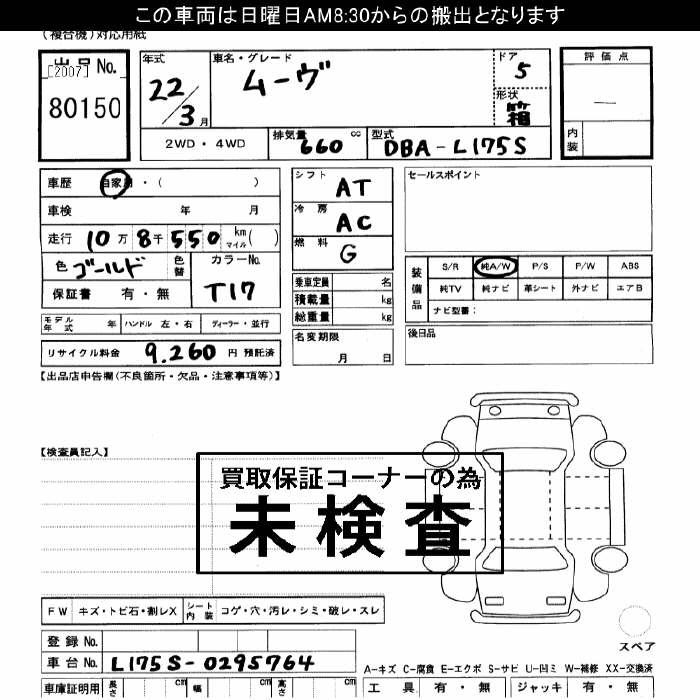 この車両は日曜日AM8:30からの搬出となります
(複合機)対応用紙
出品No.
[2007]
80150
年式
22/3月
車名・グレード
ムーヴ
ドア
5
形状
箱
評価点
―
内装
2WD・4WD
排気量 660 cc
型式 DBA-L175S
車歴 自家用・( )
車検 年 月
走行 10万8千550 km マイル( )
色 ゴールド 色替
カラーNo. T17
保証書 有・無
シフト AT
冷房 AC
燃料 G
乗車定員 名
積載量 kg
総重量 kg
セールスポイント
装備品
S/R 純A/W P/S P/W ABS
純TV 純ナビ 革シート 外ナビ エアB
ナビ型番:
モデル年式 年 ハンドル 左・右 ディーラー・並行
名変期限 月 日
後日品
リサイクル料金 9.260 円 預託済
【出品店申告欄(不良箇所・欠品・注意事項等)】
【検査員記入】
買取保証コーナーの為
未検査
FW キズ・トビ石・割レX シート内装 コゲ・穴・汚レ・シミ・破レ・スレ
登録No.
車台No. L175S-0295764
スペア
A-キズ C-腐食 E-エクボ S-サビ U-凹ミ W-補修 XX-交換済
車庫証明用 長さ cm 幅 cm 高さ cm
工具 有・無 ジャッキ 有・無